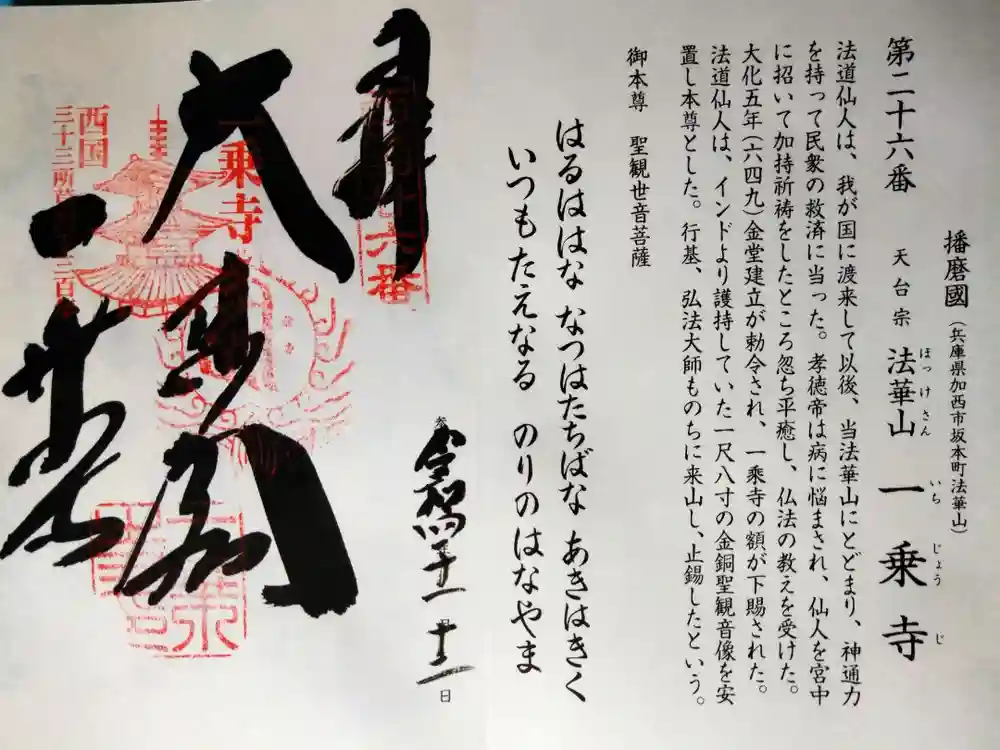 播磨國(兵庫県加西市坂本町法華山)
第二十六番 天台宗 法華山 一乗寺
ほっけさん いちじょうじ
法道仙人は、我が国に渡来して以後、当法華山にとどまり、神通力
を持って民衆の救済に当った。孝徳帝は病に悩まされ、仙人を宮中
に招いて加持祈祷をしたところ忽ち平癒し、仏法の教えを受けた。
大化五年(六四九)金堂建立が勅令され、一乗寺の額が下賜された。
法道仙人は、インドより護持していた一尺八寸の金銅聖観音像を安
置し本尊とした。行基、弘法大師ものちに来山し、止錫したという。
御本尊 聖観世音菩薩
はるははな なつはたちばな あきはきく
いつもたえなる のりのはなやま
令和四年十一月十二日
大悲閣
一乗寺
西国
一乗寺